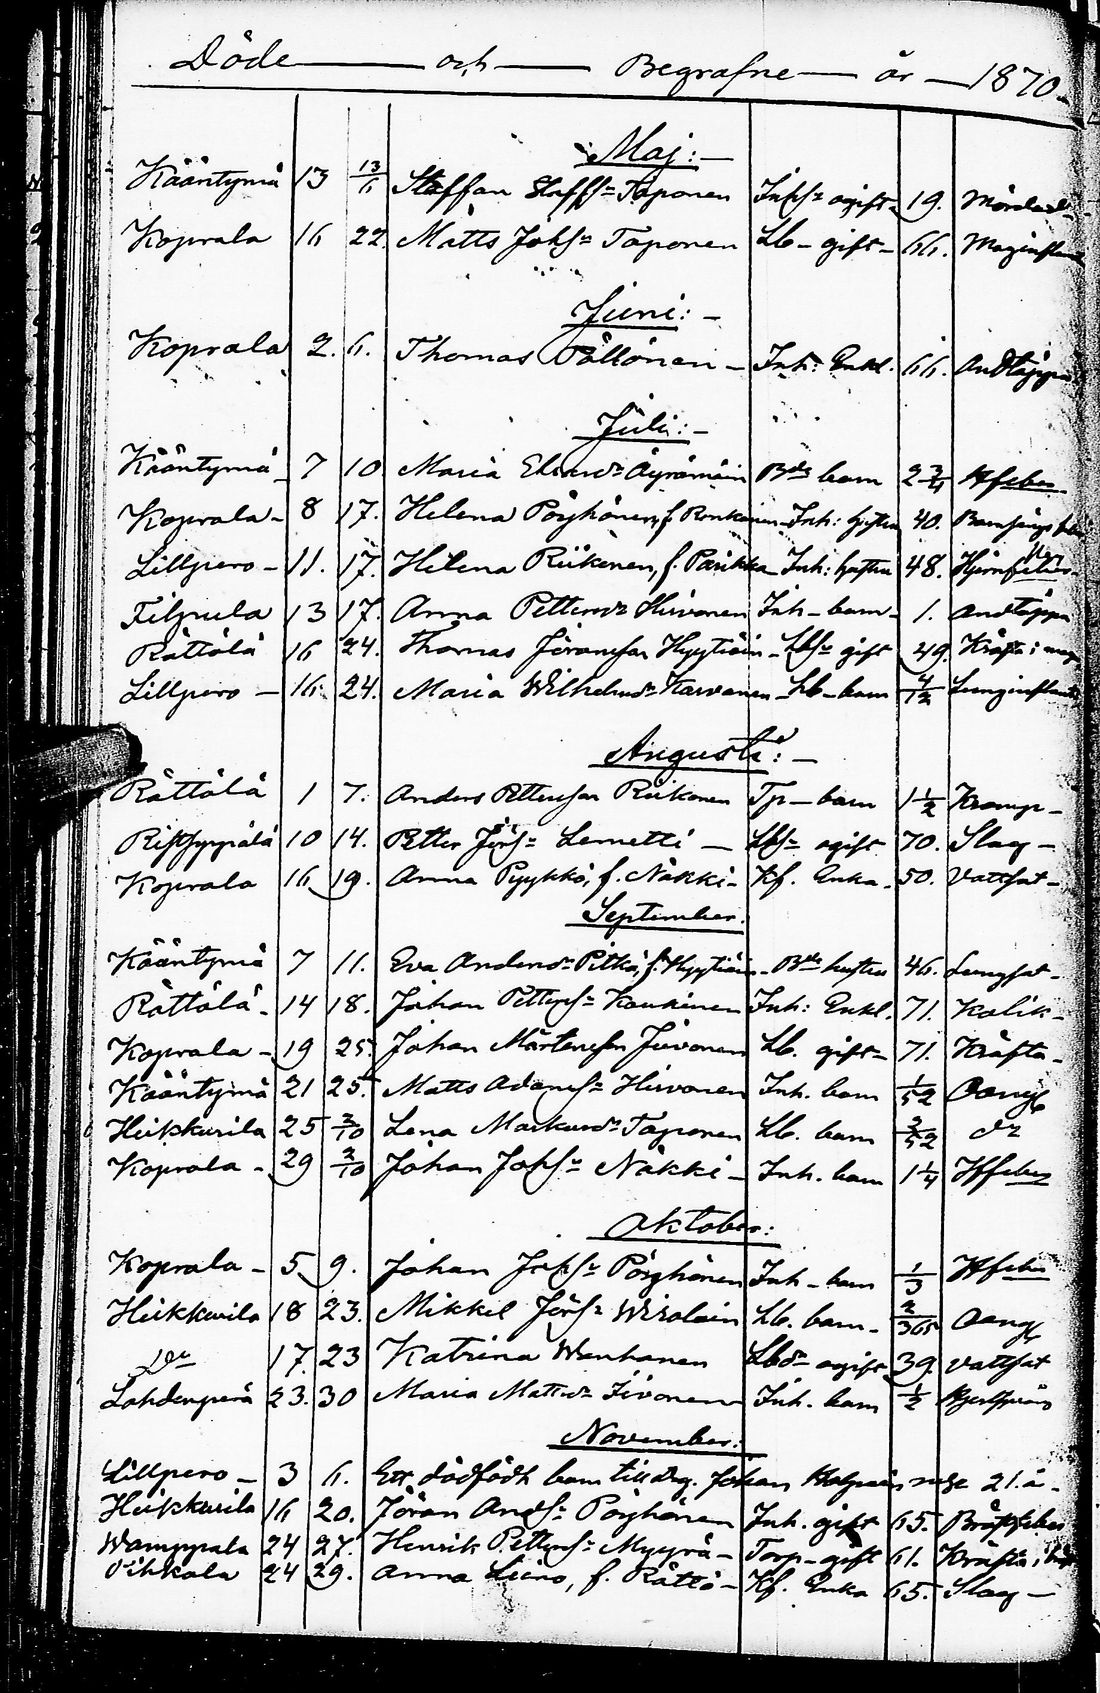 Döde — och — Begrafne — år — 1870.
Maj: —
Kääntymä 13 13/6 Staffan Staffs= Taponen Inhs= ogift 19. Mördad
Koprala 16 22. Matts Johs= Taponen Lb- gift- 66. Maginflam
Juni: —
Koprala 2. 6. Thomas Pöllönen — Inh: Enkl. 66. Andtäppa
Juli: —
Kääntymä 7 10 Maria Äyrämäin Bds barn 2 3/4 Hfeber
Koprala - 8 17. Helena Pöyhönen, f. Ronkainen - Inh: hustru 40. Barnsängsfeber
Lillpero - 11. 17. Helena Riikonen, f. Parikka - Inh: hustru 48. Hjärnfeber
Filpula 13 17. Anna Pettersdr Hirvonen Inh - barn - 1. Andtäppa
Rättälä 16 24. Thomas Göransson Hyytiäin - Lbs= gift 49. Kräfta i mag
Lillpero — 16. 24. Maria Wilhelmsdr Karvanen - Lb - barn 4/12 Lunginflam
Augusti: —
Rättälä 1 7. Anders Petterson Riikonen Tp - barn 1 1/2 Kramp -
Ristseppälä 10 14. Petter Jörs= Lemetti — Lbs= ogift 70. Slag -
Koprala 16 19. Anna Pyykkö, f. Näkki - Kf. Enka. 50. Vattsot -
September:
Kääntymä 7 11. Eva Andersdr Pitkä, f. Hyytiäin - Bds hustru 46. Lungsot -
Rättälä - 14 18. Johan Petters= Kaukinen Inh: Enkl. 71. Kolik -
Koprala - 19 25. Johan Mårtensson Jivonen Lb. gift - 71. Kräfta -
Kääntymä 21 25. Matts Adams= Hirvonen Inh. barn 1/52 Oang
Heikkurila 25 2/10 Lena Markusdr Taponen Lb. barn 2/52 do
Koprala - 29 2/10 Johan Johs= Näkki - Inh. barn 1 1/4 Hfeber
Oktober:
Koprala - 5. 9. Johan Johs= Pöyhönen Inh - barn 1/3 Hfeber
Heikkurila 18 23. Mikkel Jörs= Wirolain Lb. barn - 2/365 Oang
Do 17. 23 Katrina Wanhanen Lbdr ogift 39. Vattsot
Lahdenperä 23. 30 Maria Mattsdr Jivonen Inh. barn 1/2
November:
Lillpero - 3 6. Ett dödfödt barn till drg. Johan 21. å -
Heikkurila 16 20. Jöran Ands= Pöyhönen Inh. gift 65. Bröstfeber
Wamppala 24 27. Henrik Petters= Myyrä - Torp - gift 61. Kräfta i
Pihkala 24 29. Anna Liiro, f. Rättö - Kf. Enka 65. Slag -